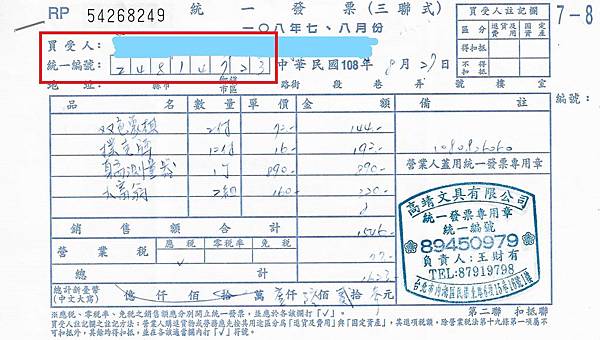 RP 54268249
統一發票(三聯式)
一○八年七、八月份
7-8
買受人:
統一編號: 24814723
中華民國108年8月27日
地址: 縣市 鄉鎮市區 路街 段 巷 弄 號 樓 室
買受人註記欄
區分 進貨及費用 固定資產
得扣抵
不得扣抵
編號:
品名 數量 單價 金額 備註
2付 72- 144.-
撲克牌 12付 16 192.-
身高測量器 1 890- 890.-
大富翁 2組 160
1080826060
營業人蓋用統一發票專用章
銷售額合計
營業稅 應稅 零稅率 免稅
總計 1623.-
總計新臺幣
(中文大寫) 億 仟 佰 拾 萬 壹仟 陸佰 貳拾 參元
高靖文具有限公司
統一發票專用章
統一編號
89450979
負責人:王財有
TEL:87919798
第二聯 扣抵聯
※應稅、零稅率、免稅之銷售額應分別開立統一發票,並應於各該欄打「✓」。
買受人註記欄之註記方法:營業人購進貨物或勞務應先按其用途區分為「進貨及費用」與「固定資產」,其進項稅額,除營業稅法第十九條第一項屬不
可扣抵外,其餘均得扣抵,並在各該適當欄內打「✓」符號。